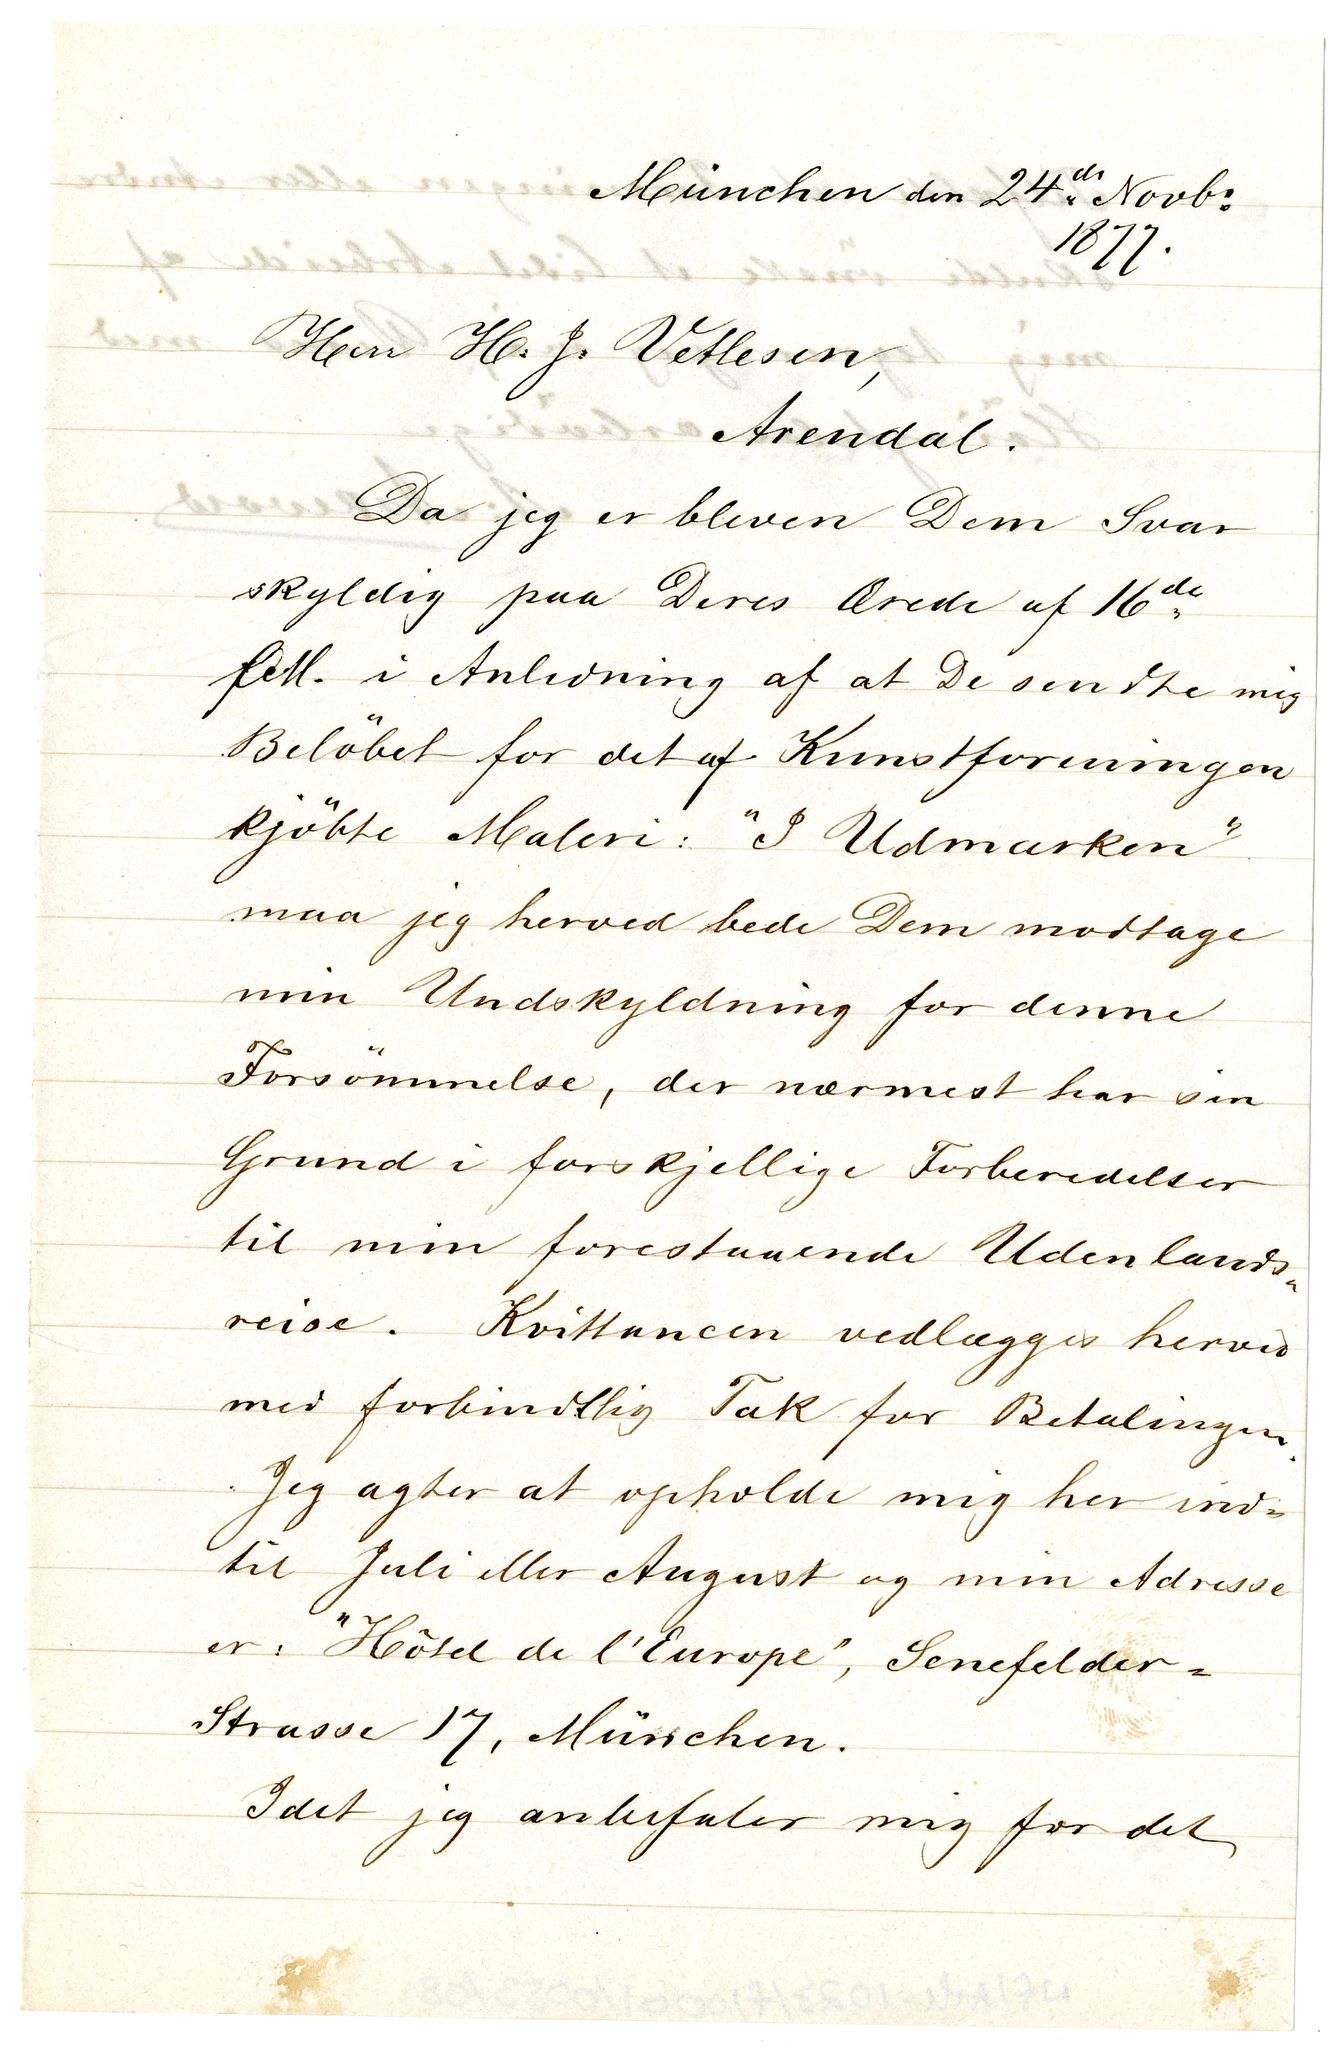 München den 24de Novb:
1877.
Herr H. J. Vetlesen,
Arendal.
Da jeg er bleven Dem Svar
skyldig paa Deres Ærede af 16de
f. M. i Anledning af at De sendte mig
Belöbet for det af Kunstforeningen
kjöbte Maleri: "I Udmarken"
maa jeg herved bede Dem modtage
min Undskyldning for denne
Forsömmelse, der nærmest har sin
Grund i forskjellige Forberedelser
til min forestaaende Udenlands-
reise. Kvittancen vedlægges herved
med forbindtlig Tak for Betalingen.
Jeg agter at opholde mig her ind-
til Juli eller August og min Adresse
er: "Hôtel de l'Europe", Senefelder-
Strasse 17, München.
Idet jeg anbefaler mig for det